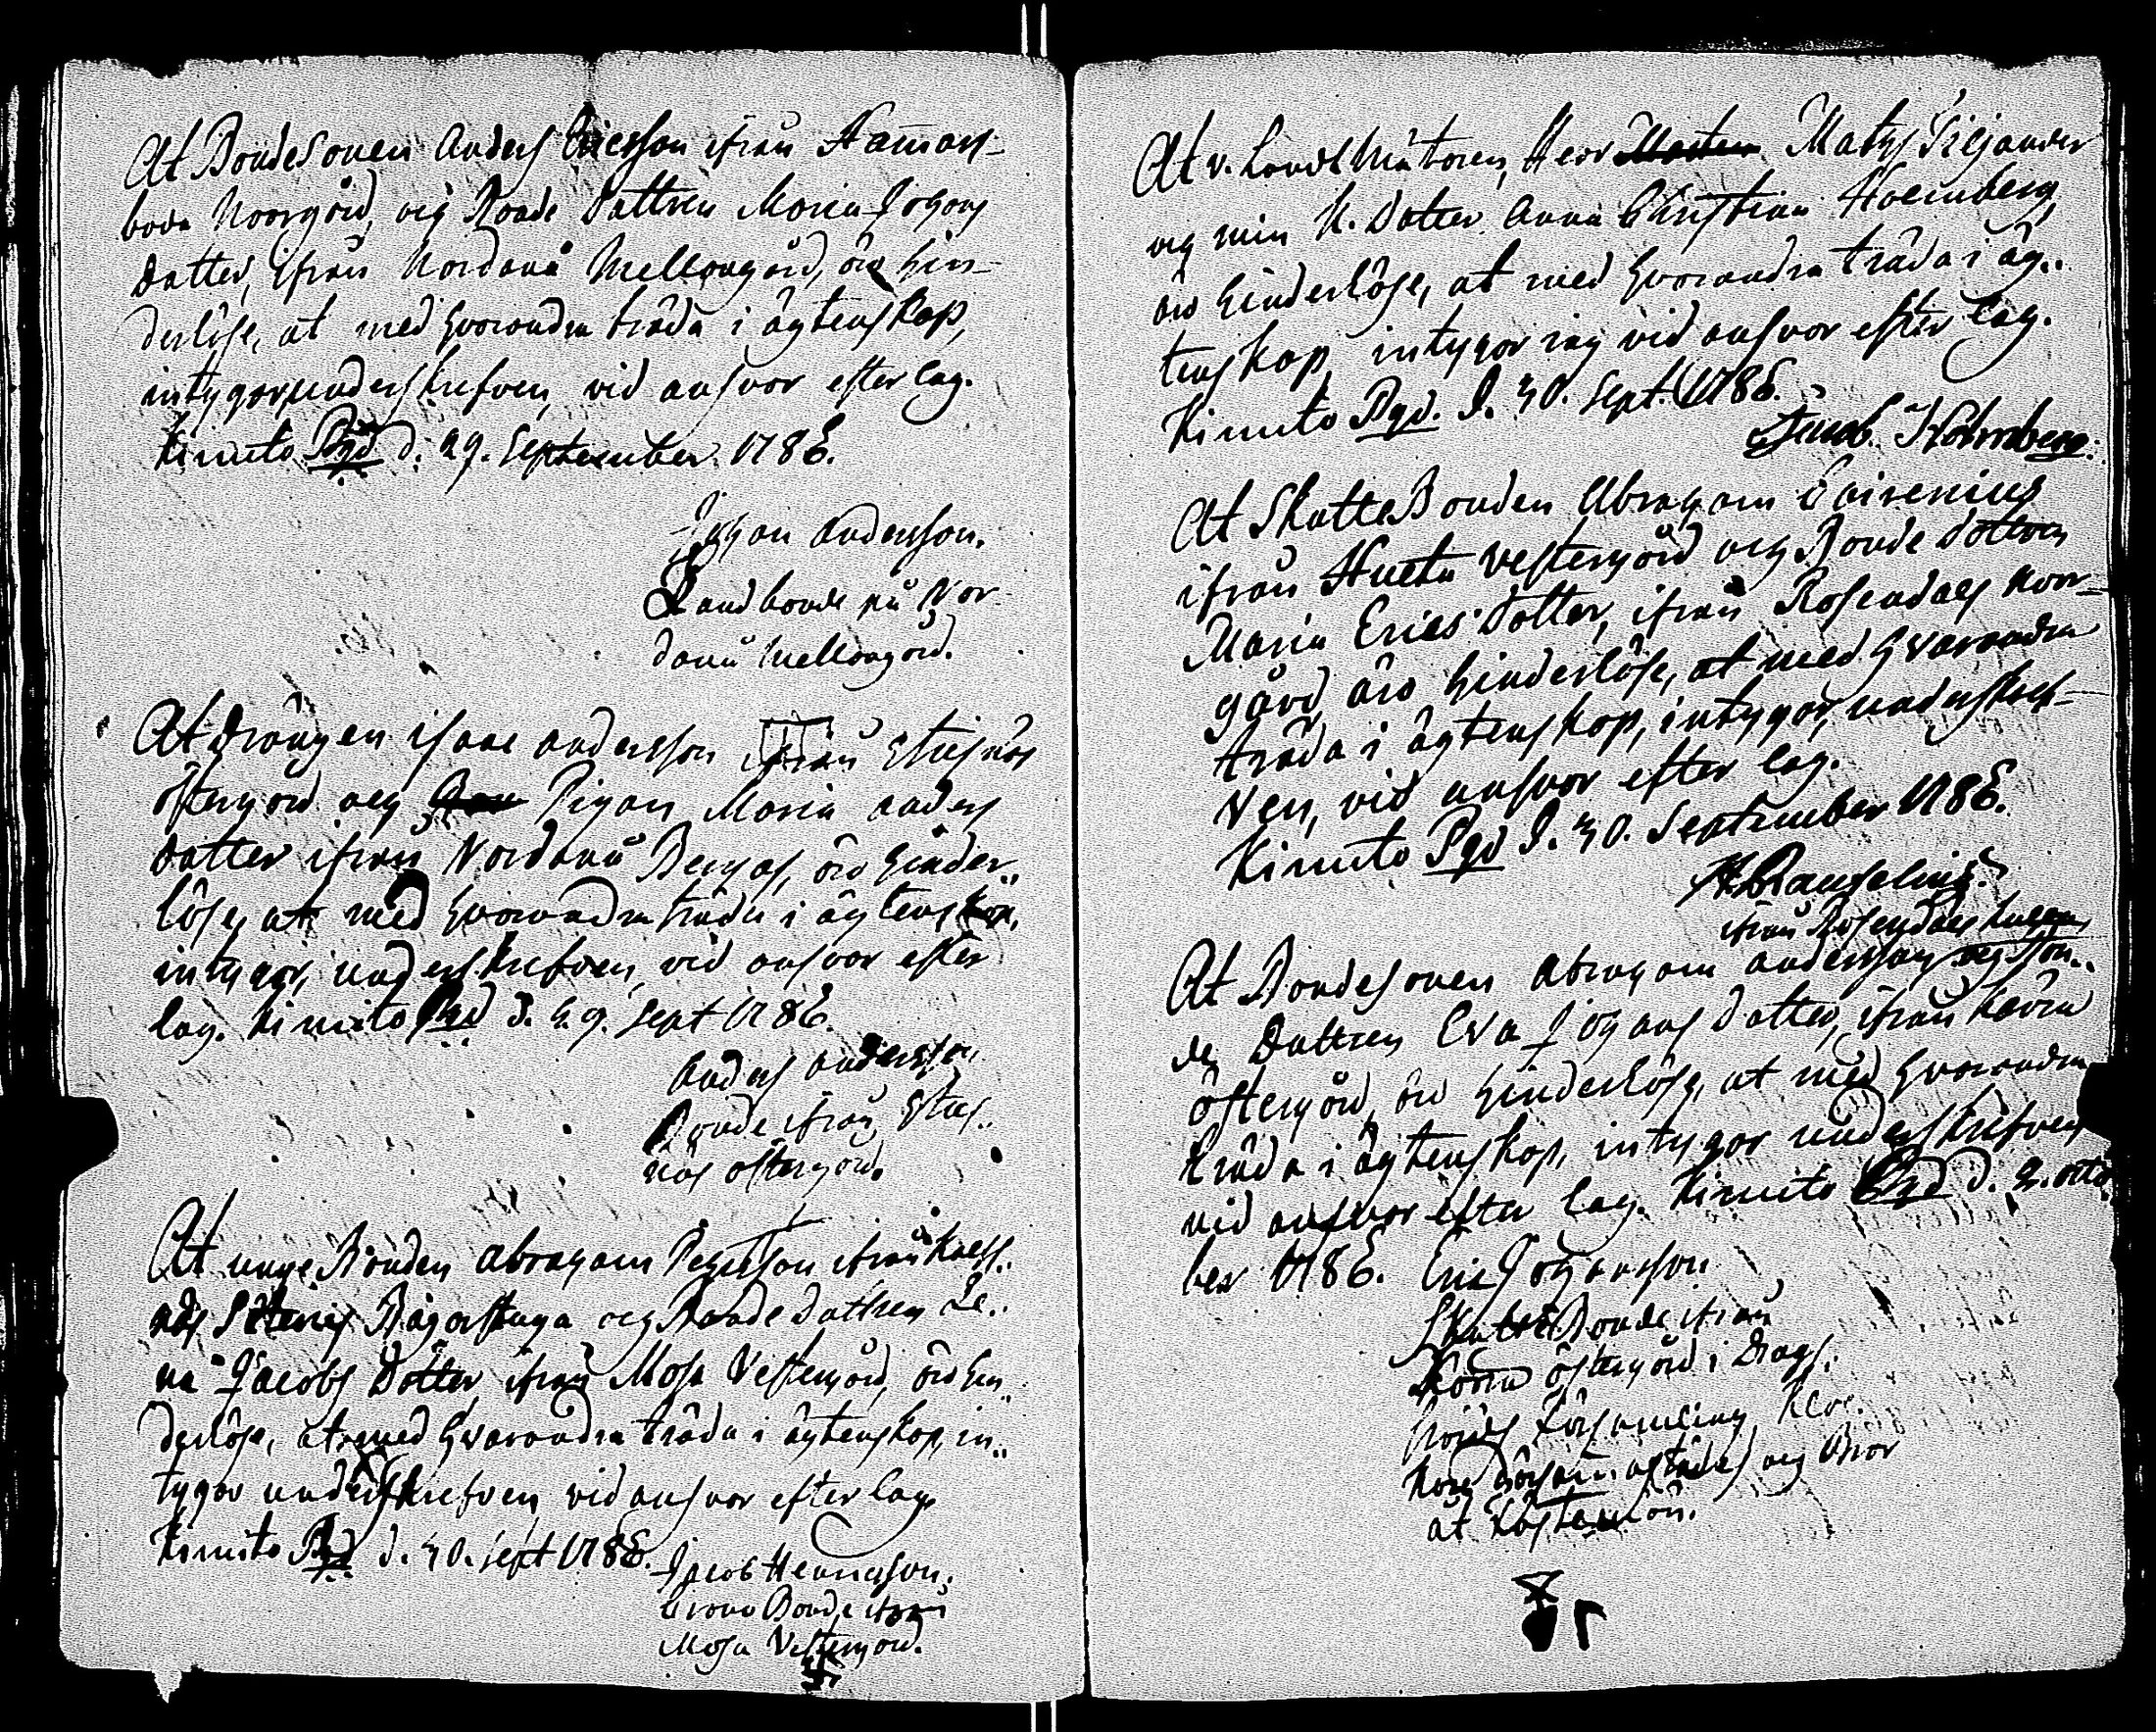 At Bondesonen Anders Ericsson ifrån Hammars-
boda Norrgård, och Bonde Dottren Maria Johans
Dotter, ifrån Nordanå Mellangård, äro hin-
derlöse, at med hvarandra träda i ägtenskap,
intygar underskrefven, vid ansvar efter lag.
Kimito Pgd d. 29. September 1786.
Johan Andersson.
Landbonde på Nor-
danå Mellangård.
At Drängen Isaac Andersson ifrån
östergård och Pigan Maria Anders
dotter ifrån Nordanå Bergas, äro hinder-
löse, at med hvarandra träda i ägtenskap,
intygar, underskrefven, vid ansvar efter
lag. Kimito Pgd d. 29. Sept 1786.
Anders Andersson
Bonde ifrån
näs östergård.
At unge Bonden Abraham ifrån
Bagarstuga och Bonde dottren Le-
na Jacobs Dotter, ifrån Mosa Vestergård, äro hin-
derlöse, at med hvarandra träda i ägtenskap, in-
tygar underskrefven, vid ansvar efter lag.
Kimito Pgd d. 30. Sept 1786.
Jacob Henricsson.
Crono Bonde ifrån
Mosa Vestergård.
At v. Landtmätaren, Herr Mats Tiljander
och min K. Dotter Anna Christina Holmberg,
äro hinderlöse, at med hvarandra träda i äg-
tenskap, intygar jag vid ansvar efter lag.
Kimito Pgd. d. 30. Sept. 1786.
Jacob Holmberg.
At Skatte Bonden Abraham
ifrån Vestergård och Bonde dottren
Maria Erics Dotter, ifrån Rosendals Norr-
gård äro hinderlöse, at med hvarandra
träda i ägtenskap, intygar, underskref-
ven, vid ansvar efter lag.
Kimito Pgd d. 30. September 1786.
ifrån Rosendals
At Bondesonen Abraham Andersson och Bon-
de Dottren Eva Johans dotter, ifrån Kårra
östergård, äro hinderlöse, at med hvarandra
träda i ägtenskap, intygar underskrefven
vid ansvar efter lag. Kimito Pgd d. 2. octo-
ber 1786. Eric Johansson
Skatte Bonde ifrån
Kårra östergård i Drags-
och Bror
at Fästemön.